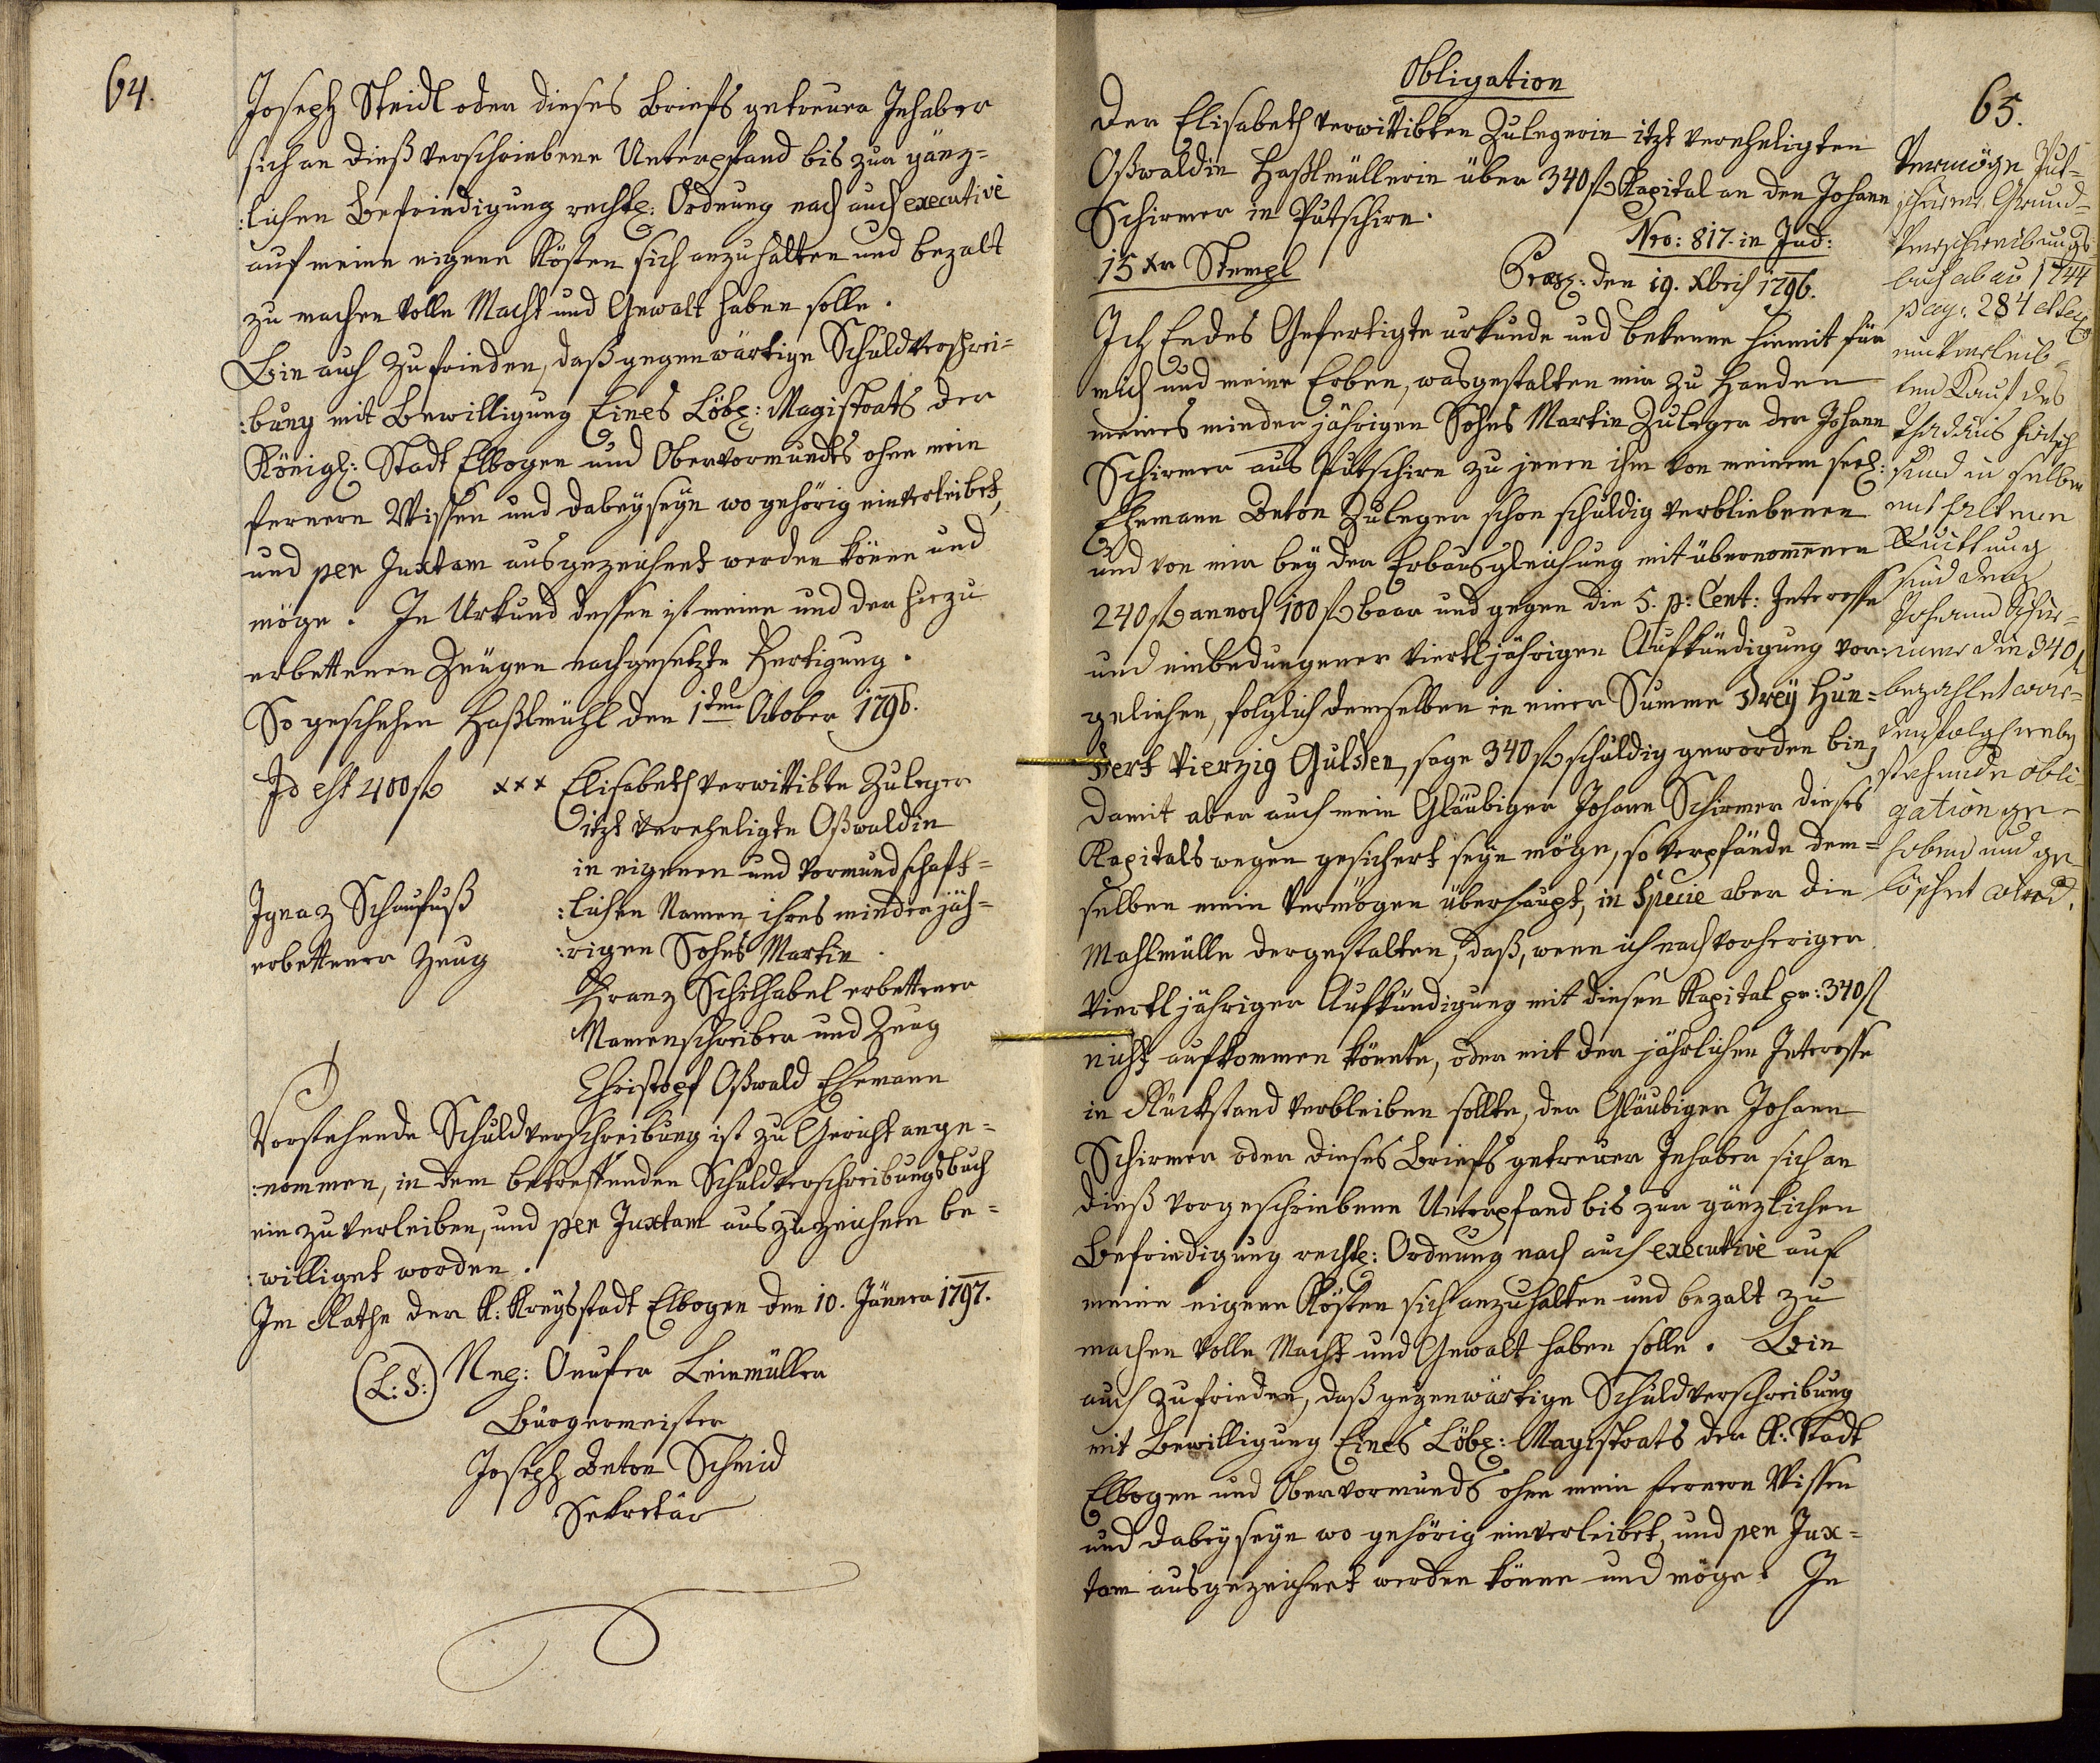 64.
Joseph Steidl oder dieses Briefs getreuer Inhaber
sich an dieß verschriebene Unterpfand bis zur gänz=
:lichen Befriedigung rechtl: Ordnung nach auch executivè
auf meine eigene Kösten sich anzuhalten und bezalt
zu machen volle Macht und Gewalt haben solle.
Bin auch zufrieden, daß gegenwärtige Schuldverschrei=
:bung mit Bewilligung Eines Löbl: Magistrats der
Königl: Stadt Elbogen und Obervormundts ohne mein
fernern Wissen und dabeyseyn wo gehörig einverleibet,
und per Juxtam ausgezeichnet werden könne und
möge. In Urkund dessen ist meine und der hiezu
erbettenen Zeugen nachgesetzte Fertigung.
So geschehen Haßlmühl den 1ten October 1796.
Id est 400 f xxx Elisabeth verwittibte Zuleger
itzt verehligte Oßwaldin
in eigenen und vormundschaft=
:lichen Namen ihres minderjäh=
:rigen Sohns Martin.
Ignaz Schaufuß
erbettener Zeug
Franz Schilhabel erbettener
Namenschreiber und Zeug
Christoph Oßwald Ehemann
Vorstehende Schuldverschreibung ist zu Gericht ange=
:nommen, in dem betreffenden Schuldverschreibungsbuch
ein zu verleiben, und per Juxtam auszuzeichnen be=
:williget worden.
Im Rathe der K: Kreysstadt Elbogen den 10. Jänner 1797.
(L:S:) Onufer Leinmüller
Bürgermeister
Joseph Anton Schmid
Sekretär
65.
Obligation
Der Elisabeth verwittibten Zulegerin itzt verehligten
Oßwaldin Haßlmüllerin über 340 f Kapital an den Johann
Schirmer in Putschirn.
Nro: 817. in Jud:
15 xr Stempl
Præs: den 19. Xbris 1796.
Ich Endes Gefertigte urkunde und bekenne hiemit für
mich und meine Erben, wasgestalten mir zu Handen
meines minderjährigen Sohns Martin Zuleger der Johann
Schirmer aus Putschirn zu jenen ihm von meinem seel:
Ehemann Anton Zuleger schon schuldig verbliebenen
und von mir bey der Erbausgleichung mit übernommenen
240 f annoch 100 f baar und gegen die 5. p: Cent: Interesse
und einbedungener viertljährigen Aufkündigung vor:
geliehen, folglich demselben in einer Summe Drey Hun=
dert Vierzig Gulden, sage 340 f schuldig geworden bin,
damit aber auch mein Gläubiger Johann Schirmer dieses
Kapitals wegen gesichert seyn möge, so verpfände dem=
selben mein Vermögen überhaupt, in Specie aber die
Mahlmülle dergestalten, daß, wenn ich nach vorheriger
viertljähriger Aufkündigung mit diesen Kapital pr: 340 f
nicht aufkommen könnte, oder mit der jährlichen Interesse
in Rückstand verbleiben sollte, der Gläubiger Johann
Schirmer oder dieses Briefs getreuer Inhaber sich an
dieß vorgeschriebene Unterpfand bis zur gänzlichen
Befriedigung rechtl: Ordnung nach auch executivè auf
meine eigene Kösten sich anzuhalten und bezalt zu
machen volle Macht und Gewalt haben solle. Bin
auch zufrieden, daß gegenwärtige Schuldverschreibung
mit Bewilligung Eines Löbl: Magistrats der K: Stadt
Elbogen und Obervormunds ohne mein fernern Wissen
und dabeyseyn wo gehörig einverleibet, und per Jux=
tam ausgezeichnet werden könne und möge. In
Vermöge Put=
schirner Grund=
Verschreibungs
buch ab ao 1744
pag: 284 et seq
einverleib=
ten Kauf des
Thadäus
und in selben
enthaltenen
Quittung
sind dem
Johann Schir=
mer die 340 f
bezahlet wor=
den folgl neben
stehende obli
gation ge=
hoben und ge
löschet wird.